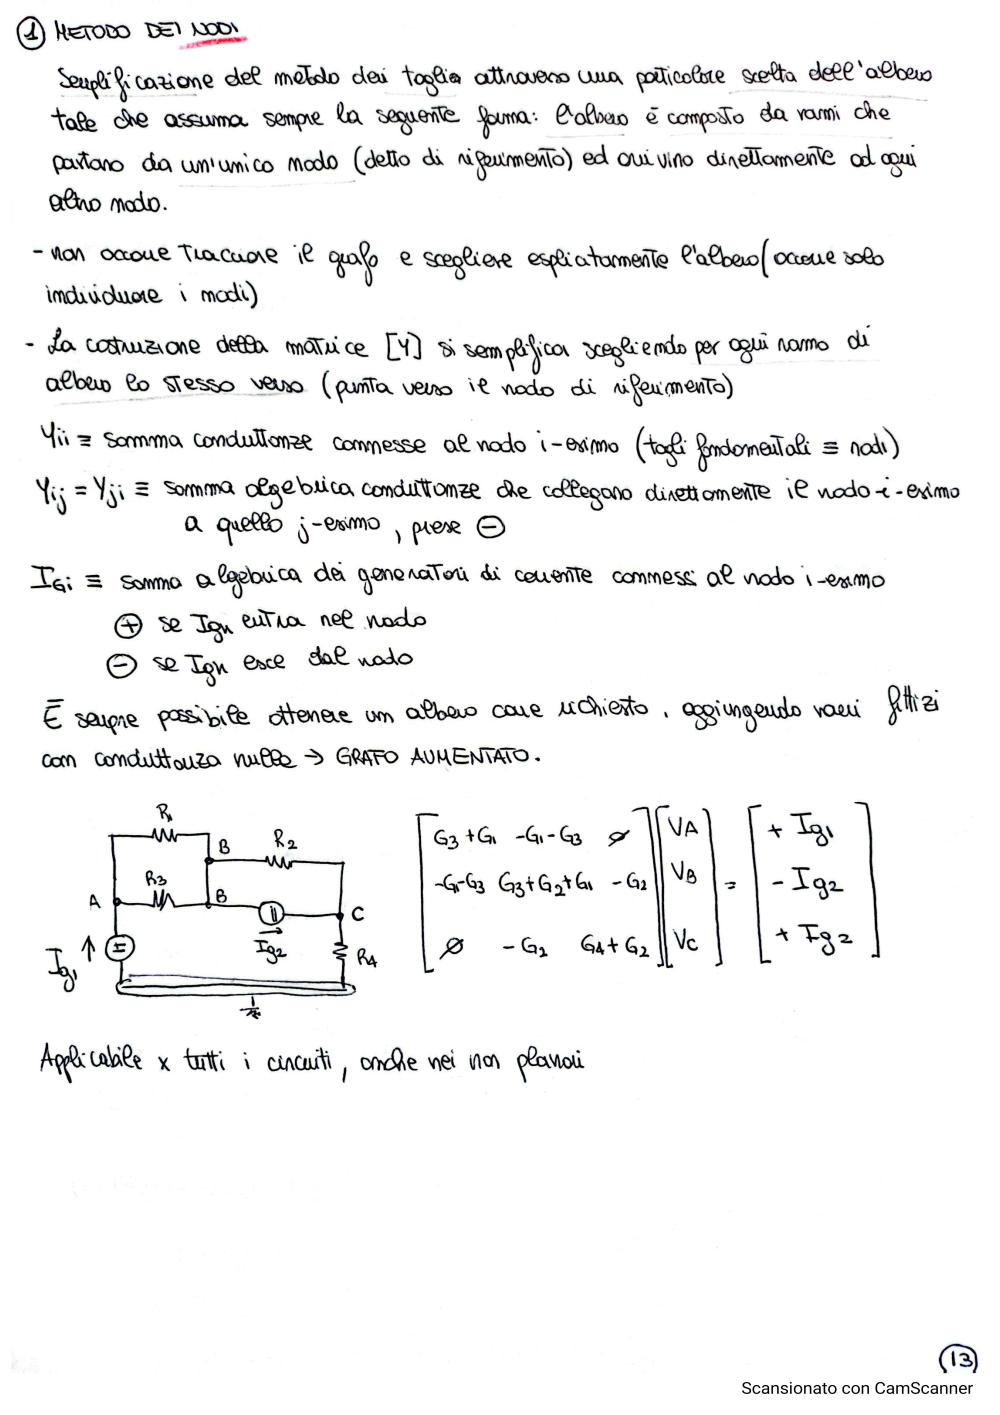 ① METODO DEI NODI
Semplificazione del metodo dei taglia attraverso una particolare scelta dell'albero
tale che assuma sempre la seguente forma: l'albero è composto da rami che
partano da un'unico nodo (detto di riferimento) ed arrivino direttamente ad ogni
altro nodo.
- non occorre tracciare il grafo e scegliere esplicitamente l'albero (occorre solo
individuare i nodi)
- La costruzione della matrice [Y] si semplifica scegliendo per ogni ramo di
albero lo stesso verso (punta verso il nodo di riferimento)
Yii ≡ somma conduttanze connesse al nodo i-esimo (tagli fondamentali ≡ nodi)
Yij = Yji ≡ somma algebrica conduttanze che collegano direttamente il nodo i-esimo
a quello j-esimo, prese ⊖
IGi ≡ somma algebrica dei generatori di corrente connessi al nodo i-esimo
⊕ se Ign entra nel nodo
⊖ se Ign esce dal nodo
È sempre possibile ottenere un albero come richiesto, aggiungendo rami fittizi
con conduttanza nulla → GRAFO AUMENTATO.
R1
R2
B
R3
A
B
C
Ig1
Ig2
R4
G3+G1 -G1-G3 ∅ VA + Ig1
-G1-G3 G3+G2+G1 -G2 VB = - Ig2
∅ -G2 G4+G2 VC + Ig2
Applicabile x tutti i circuiti, anche nei non planari
13
Scansionato con CamScanner